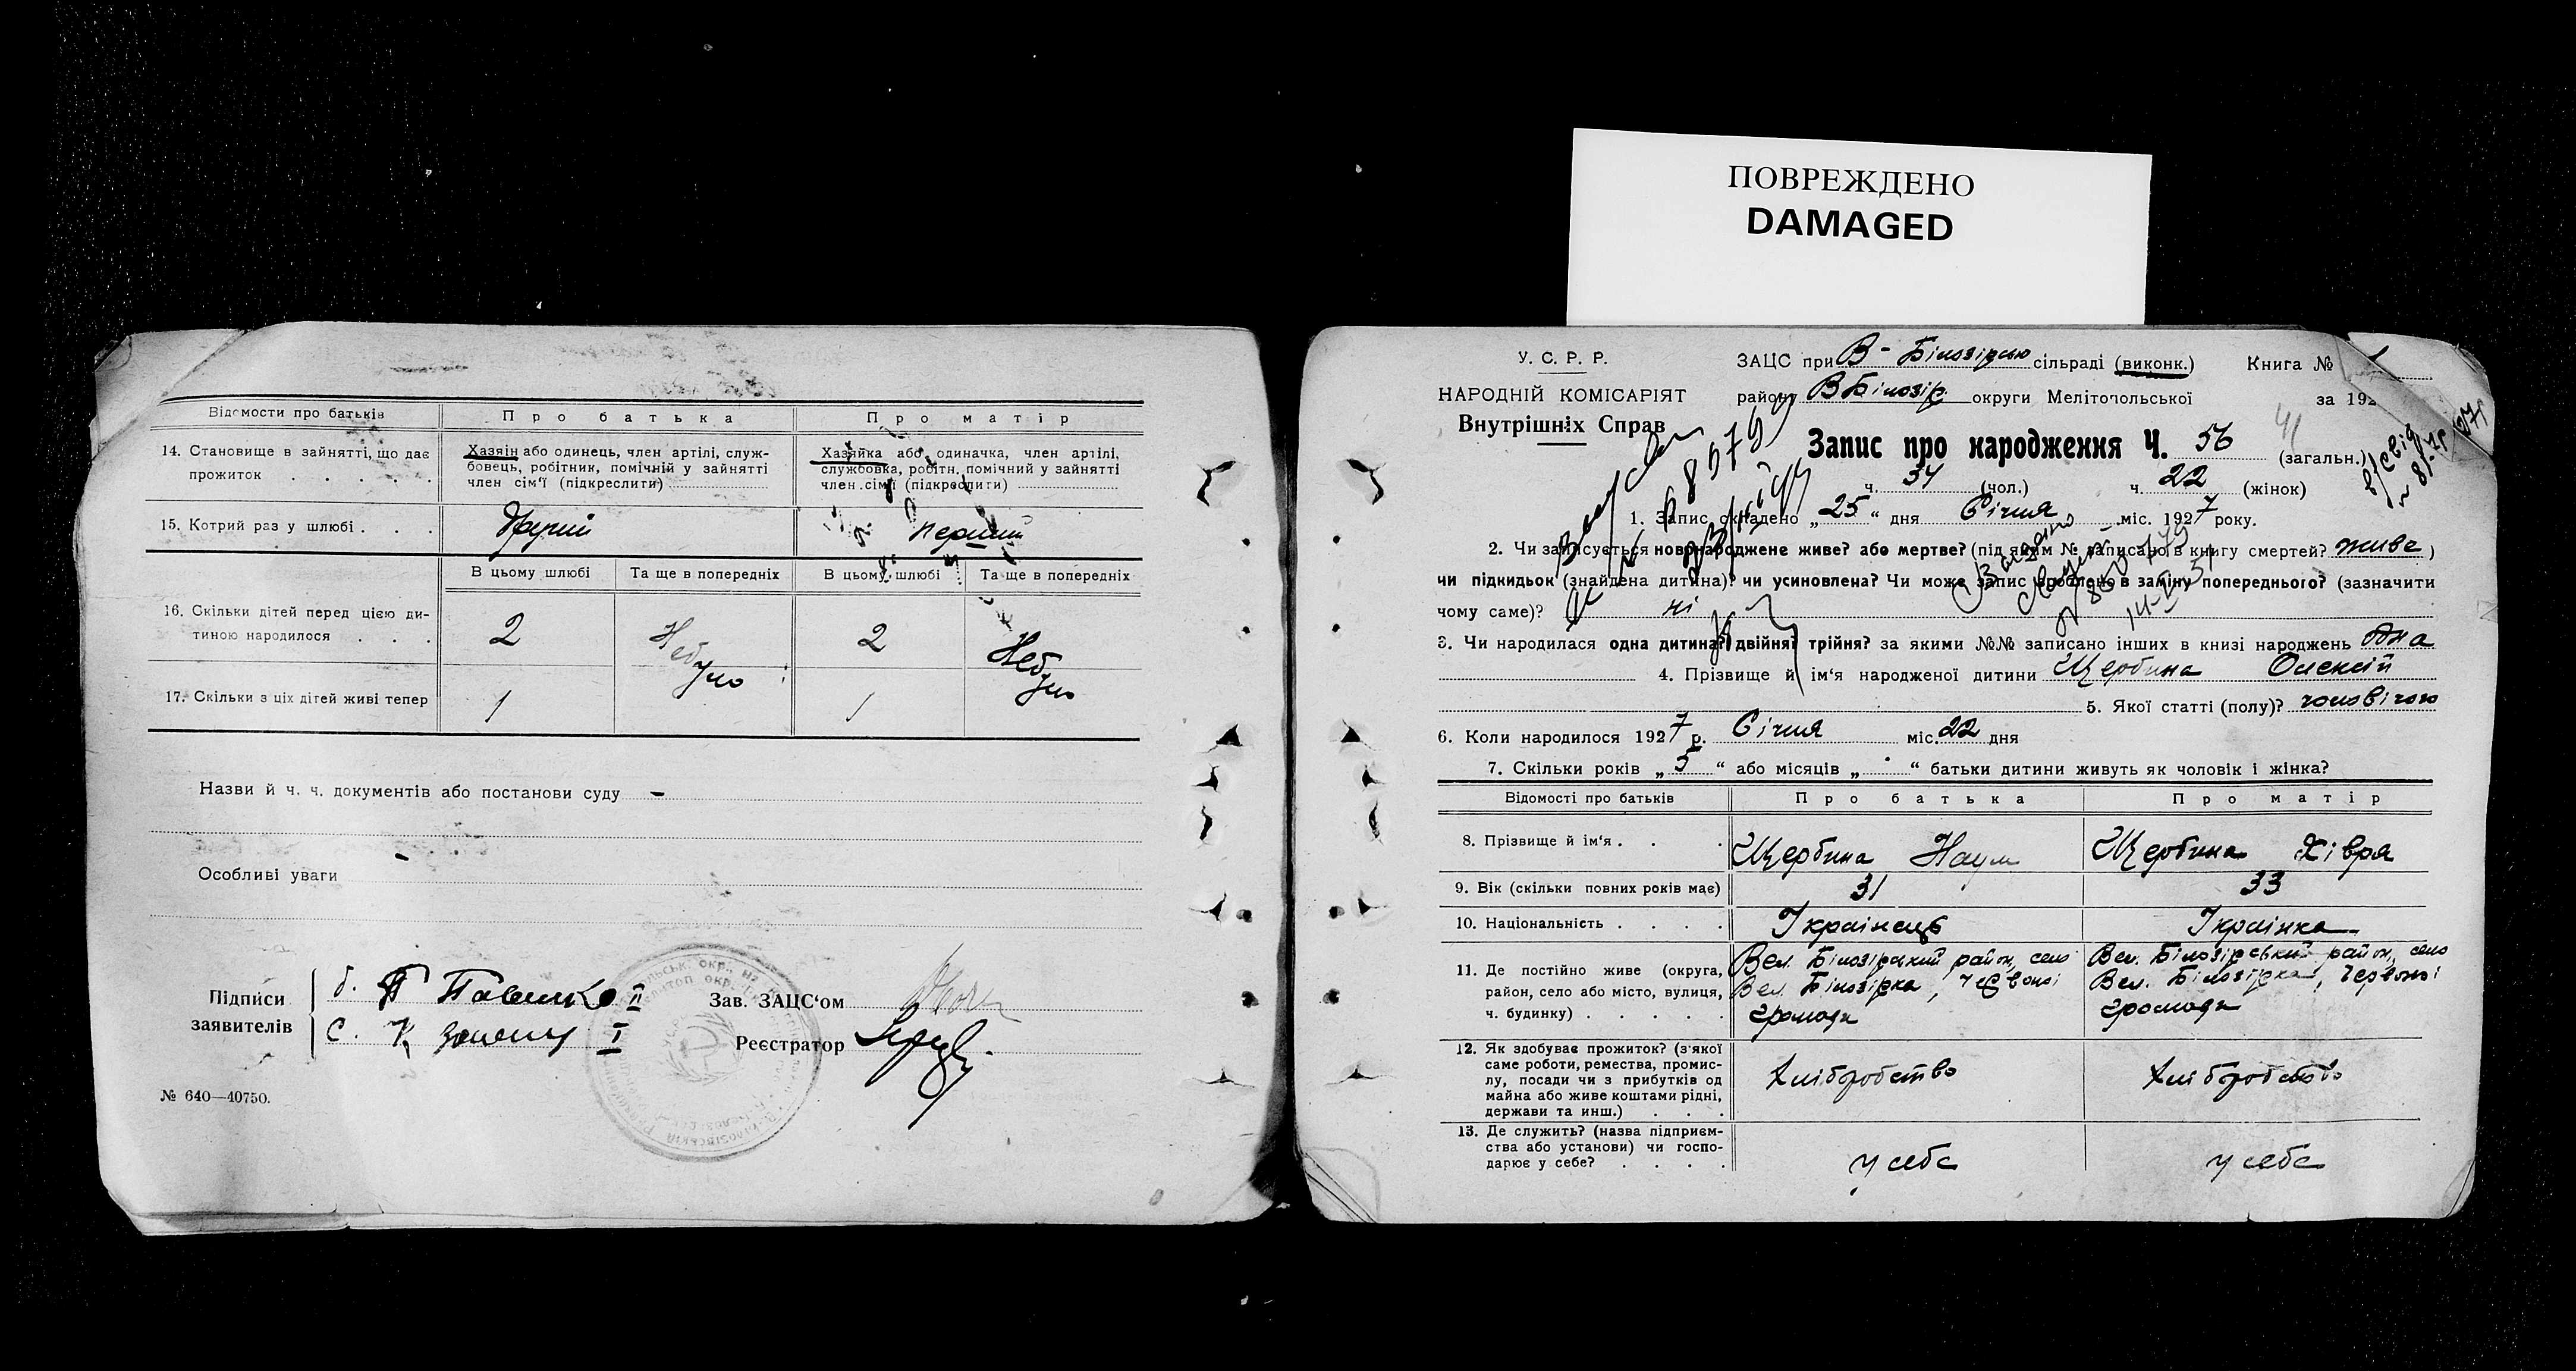 ПОВРЕЖДЕНО
DAMAGED
Відомости про батьків
Про батька
Про матір
14. Становище в зайнятті, що дає прожиток . . . . .
Хазяїн або одинець, член артілі, служ-
бовець, робітник, помічній у зайнятті
член сім'ї (підкреслити)
Хазяйка або одиначка, член артілі,
службовка, робітн. помічний у зайнятті
член сімї (підкреслити)
15. Котрий раз у шлюбі . . .
Другий
перший
В цьому шлюбі
Та ще в попередніх
В цьому шлюбі
Та ще в попередніх
16. Скільки дітей перед цією ди-
тиною народилося . . .
2
Не було
2
Не було
17. Скільки з ціх дігей живі тепер
1
1
Назви й ч. ч. документів або постанови суду -
Особливі уваги -
Підписи
заявителів
б. Павленко II
с. I
Зав. ЗАЦС'ом
Реєстратор
№ 640—40750.
У. С. Р. Р.
НАРОДНІЙ КОМІСАРІЯТ
Внутрішніх Справ
ЗАЦС при В-Білозірсью сільраді (виконк.)
Книга №
району В Білозір. округи Мелітопольської
за 192
41
Запис про народження Ч. 56 (загальн.)
ч. 34 (чол.) ч. 22 (жінок)
1. Запис складено „25“ дня Січня міс. 1927 року.
2. Чи записується новонароджене живе? або мертве? (під яким № записано в книгу смертей? живе )
чи підкидьок (знайдена дитина)? чи усиновлена? Чи може запис зроблено в заміну попереднього? (зазначити
чому саме)? ні
3. Чи народилася одна дитина? двійня? трійня? за якими №№ записано інших в книзі народжень одна
4. Прізвище й ім'я народженої дитини Щербина Олексій
5. Якої статті (полу)? чоловічою
6. Коли народилося 1927 р. Січня міс. 22 дня
7. Скільки років „5“ або місяців „ “ батьки дитини живуть як чоловік і жінка?
Відомості про батьків
Про батька
Про матір
8. Прізвище й ім'я . . .
Щербина Наум
Щербина Хівря
9. Вік (скільки повних років має)
31
33
10. Національність . . . .
Українець
Українка
11. Де постійно живе (округа,
район, село або місто, вулиця,
ч. будинку) . . . . .
Вел. Білозірський район, село
Вел. Білозірка, Червоної
громади
Вел. Білозірський район, село
Вел. Білозірка, Червоної
громади
12. Як здобуває прожиток? (з'якої
саме роботи, ремества, промис-
лу, посади чи з прибутків од
майна або живе коштами рідні,
держави та инш.) . . .
Хліборобство
Хліборобство
13. Де служить? (назва підприєм-
ства або установи) чи госпо-
дарює у себе? . . . .
у себе
у себе